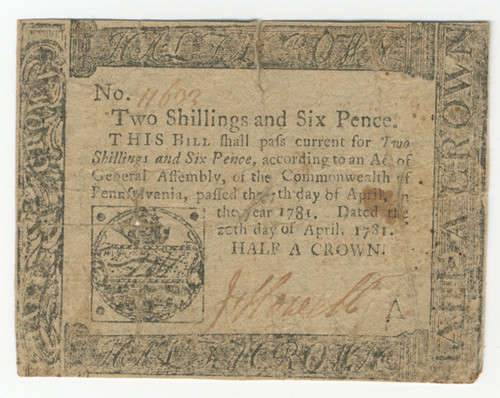 HALF A CROWN
No. 11633
Two Shillings and Six Pence.
THIS BILL ſhall paſs current for Two
Shillings and Six Pence, according to an Act of
General Aſſembly, of the Commonwealth of
Pennſylvania, paſſed the 7th day of April, in
the year 1781. Dated the
20th day of April, 1781.
HALF A CROWN.
A
HALF A CROWN
HALF A CROWN